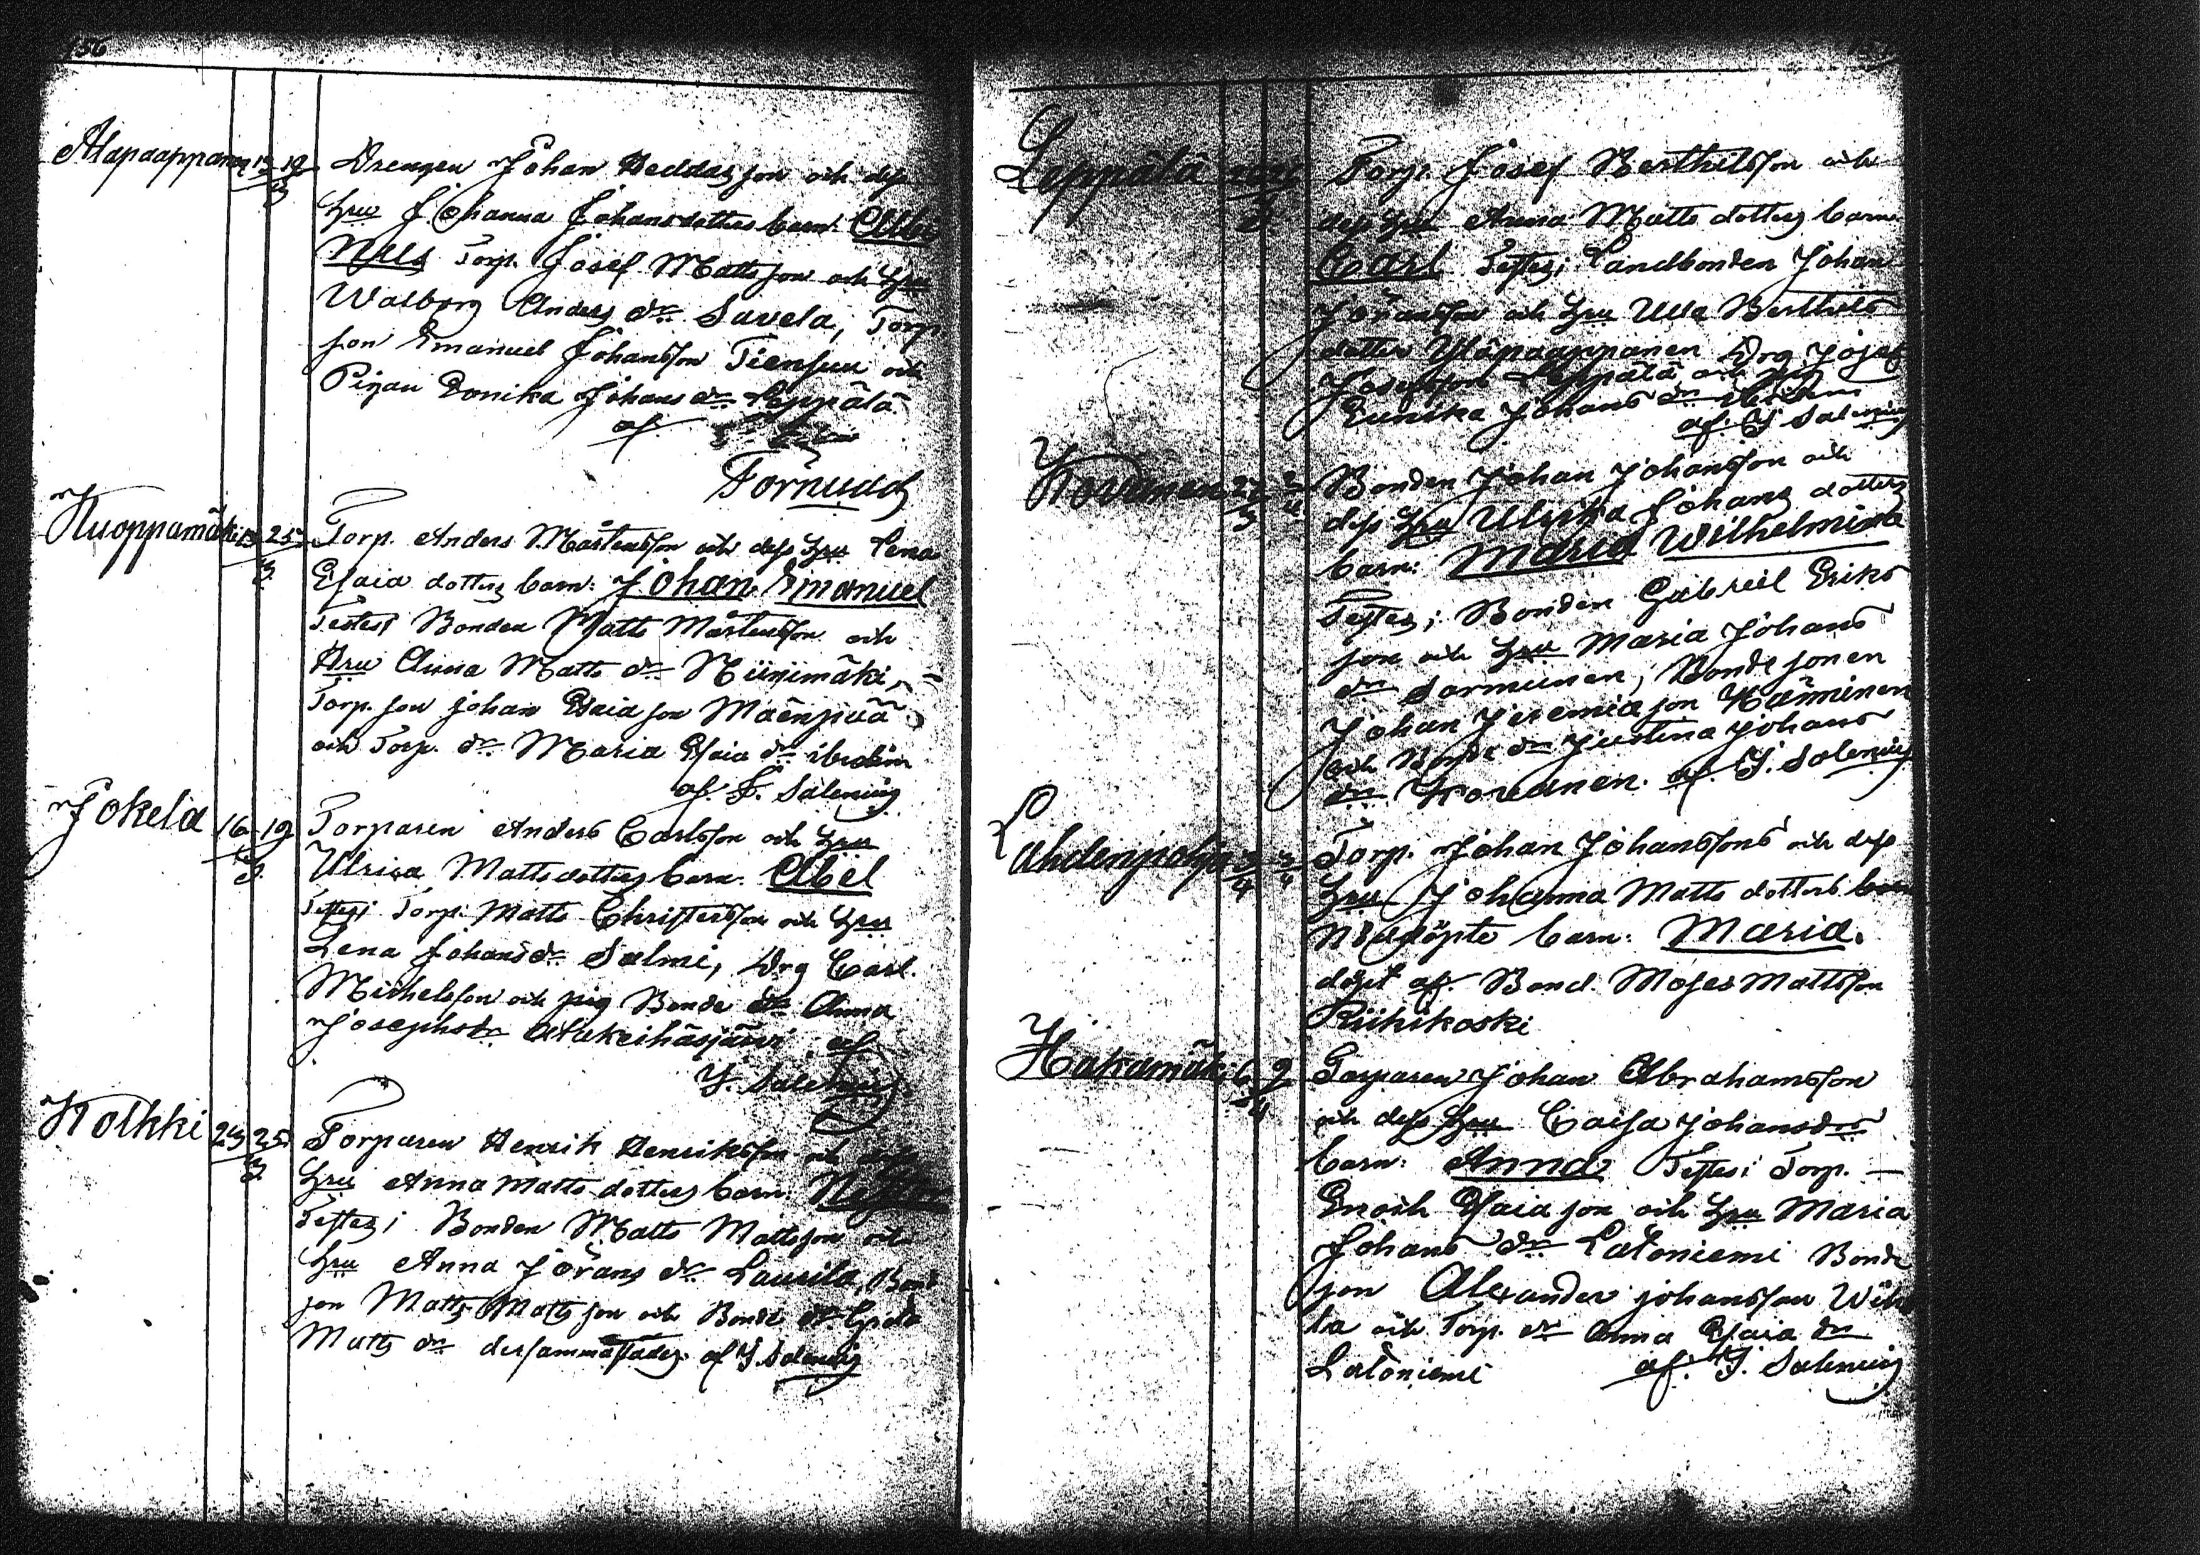 156
Alapaappanen 13 19
3
Drengen Johan Heddasson och dess
Hru Johanna Johansdotters barn:
Nils Torp. Josef Mattsson och Hru
Walborg Anders dr Savela, Torp
son Emanuel Johansson Tiensuu och
Pigan Eonika Johans dr Leppälä
af
Törnudd
Kuoppamäki 19 25
3
Torp. Anders Mårtensson och dess Hru Lena
Esaia dotters barn: Johan Emanuel
Testes; Bonden Matts Mårtensson och
Hru Anna Matts dr Niinimäki,
Torp. son johan Esaia son Mäenpää
och Torp. dr Maria Esaia dr ibidem
af. F. Salenius
Jokela 16 19
3
Torparen Anders Carlsson och Hru
Ulrica Matts dotters barn. Abel
Testes; Torp. Matts Christersson och Hru
Lena Johans dr Salmi, Drg Carl
Michelsson och pig Bonde dr Anna
Josephs dr Alakeihäsjärvi af
F. Salenius
Kolkki 23 25
3
Torparen Henrik Henriksson och dess
Hru Anna Matts dotters barn:
Testes; Bonden Matts Mattsson och
Hru Anna Jörans dr Laurila, Bonde
son Matts Matts son och Bonde dr
Matts dr dersammastädes. af F. Salenius
Leppälä
3
Torp. Josef Berthilsson och
dess Hru Anna Matts dotters barn
Carl Testes; Landbonden Johan
Jöransson och Hru Ulla Berthils
dotter Yläpaappanen Drg Josef
Josephsson Leppälä och
Eunika Johans dr ibidem
af. F Salenius
Kovanen 27 2
3 4
Bonden Johan Johansson och
dess Hru Ulrika Johans dotters
barn: Maria Wilhelmina
Testes; Bonden Gabriel Eriks
son och Hru Maria Johans
dr Sormunen, Bonde sonen
Johan Jeremia son Hänninen
och Bonde dr Justina Johans
dr Kovanen. af F. Salenius
Lahdenpohja 3 3
4 4
Torp. Johan Johanssons och dess
Hru Johanna Matts dotters
Nöddöpte barn: Maria.
döpt af Bond. Moses Mattsson
Riihikoski
Hakamäki 6 9
4
Torparen Johan Abrahamsson
och dess Hru Caisa Johansdrs
barn: Anna Testes; Torp.
Enoch Esaia son och Hru Maria
Johans dr Latoniemi Bonde
son Alexander johansson
la och Torp. dr Anna Esaia dr
Latoniemi af. F. Salenius